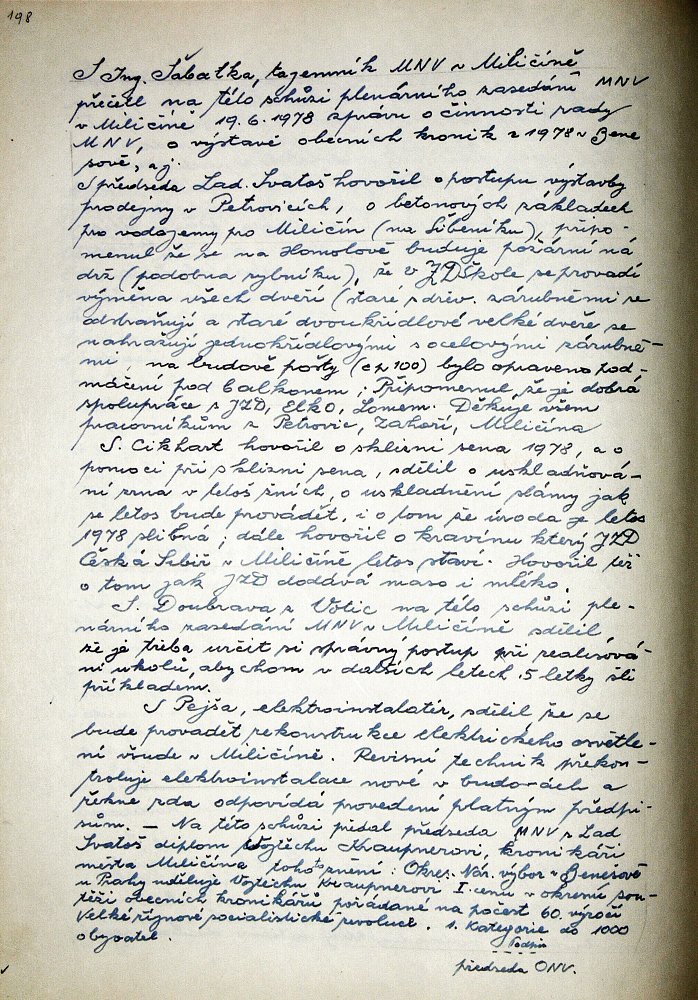 198
S Ing. Šabatka, tajemník MNV v Miličíně
přečetl na této schůzi plenárního zasedání MNV
v Miličíně 19.6.1978 zprávu o činnosti rady
MNV, o výstavě obecních kronik z 1978 v Bene
šově, aj.
S předseda Lad. Svatoš hovořil o postupu výstavby
prodejny v Petrovicích, o betonových základech
pro vodojemy pro Miličín (na Šibeníku), připo-
menul že se na Homolově buduje požární ná
drž (podobna rybníku), že v ZDškole se provadí
výměna všech dveří (staré s dřev. zárubněmi se
odstraňují a staré dvoukřídlové velké dveře se
nahražují jednokřídlovými s ocelovými zárubně-
mi, na budově pošty (čp 100) bylo opraveno pod-
máčení pod balkonem; Připomenul, že je dobrá
spolupráce s JZD, Elko, Lomem. Děkuje všem
pracovníkům z Petrovic, Zahoří, Miličína
S. Cikhart hovořil o sklizni sena 1978, a o
pomoci při sklizni sena, sdělil o uskladňová-
ní zrna v letoš. žních, o uskladnění slámy jak
se letos bude provádět, i o tom že úroda je letos
1978 slibná; dále hovořil o kravínu který JZD
Česká Sibiř v Miličíně letos staví. Hovořil též
o tom jak JZD dodává maso i mléko.
S. Doubrava z Votic na této schůzi ple-
nárního zasedání MNV v Miličíně sdělil
že je třeba určit si správný postup při realisová-
ní úkolů, abychom v dalších letech 5-letky šli
příkladem.
S Pejša, elektroinstalatér, sdělil že se
bude provadět rekonstrukce elektrického osvětle-
ní všude v Miličíně. Revisní technik překon-
troluje elektroinstalace nové v budovách a
řekne zda odpovídá provedení platným předpi-
sům. — Na této schůzi předal předseda MNV s Lad
Svatoš diplom Vojtěchu Kraupnerovi, kronikáři
města Miličína tohoto znění: Okres. Nár. výbor v Benešově
u Prahy uděluje Vojtěchu Kraupnerovi I. cenu v okresní sou-
těži obecních kronikářů pořádané na počest 60. výročí
Velké říjnové socialistické revoluce. 1. Kategorie do 1000
obyvatel.
Podpis
předseda ONV.